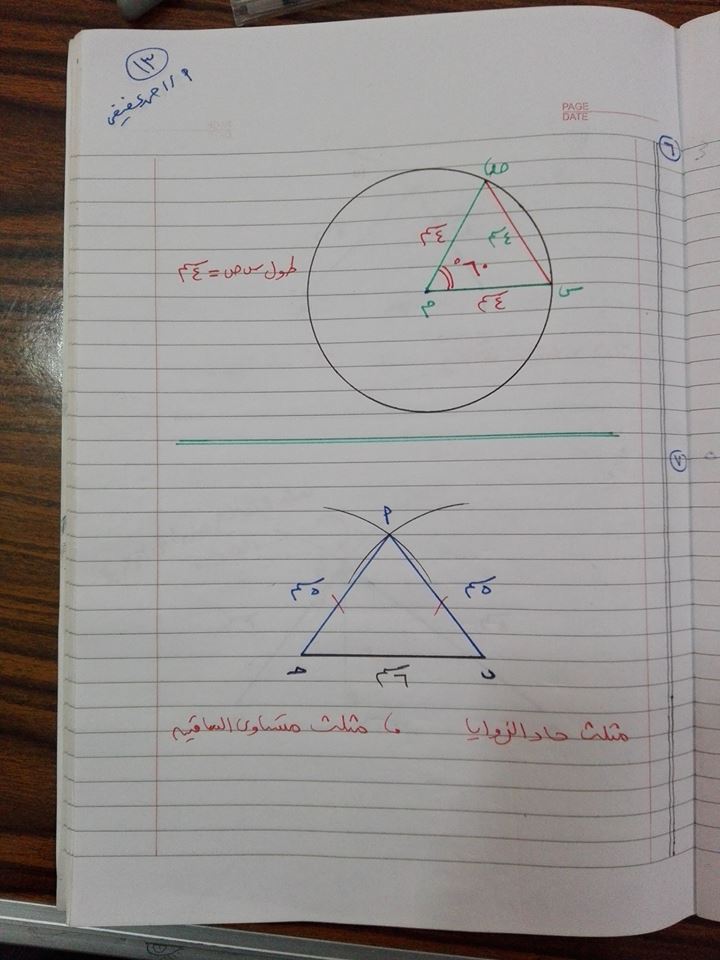 ١٣
PAGE
DATE
٦
ص
٤سم
٤سم
٦٠°
م
٤سم
س
طول س ص = ٤سم
٧
٩
٥سم
٥سم
ب
٦سم
ح
مثلث حاد الزوايا ، مثلث متساوى الساقين